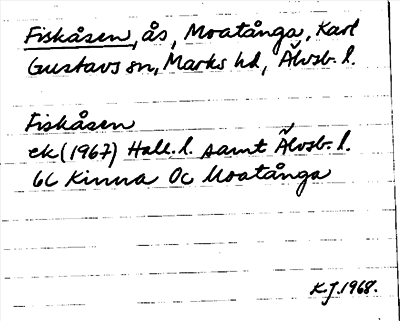 Fiskåsen, ås, Moatånga, Karl
Gustavs sn, Marks hd, Älvsb. l.
Fiskåsen
ek (1967) Hall. l. samt Älvsb. l.
6C Kinna 0c Moatånga
K.J. 1968.